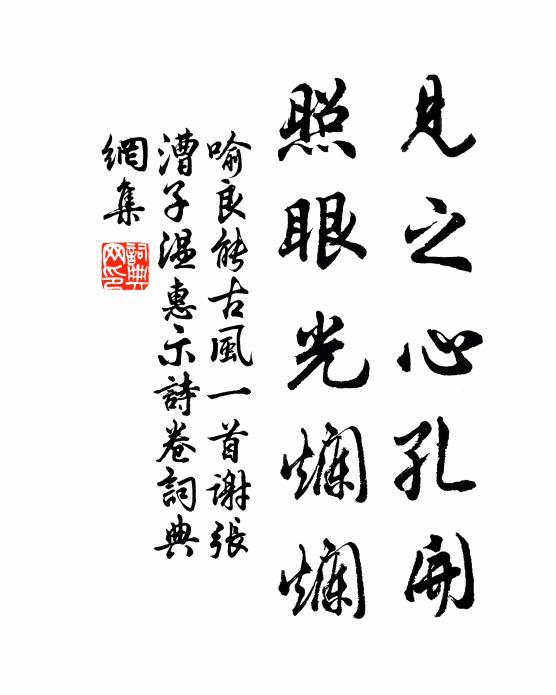 見之心孔開
照眼光爛爛
喻良能古風一首謝張
漕子溫惠示詩卷詞典
網集
詞典
网印